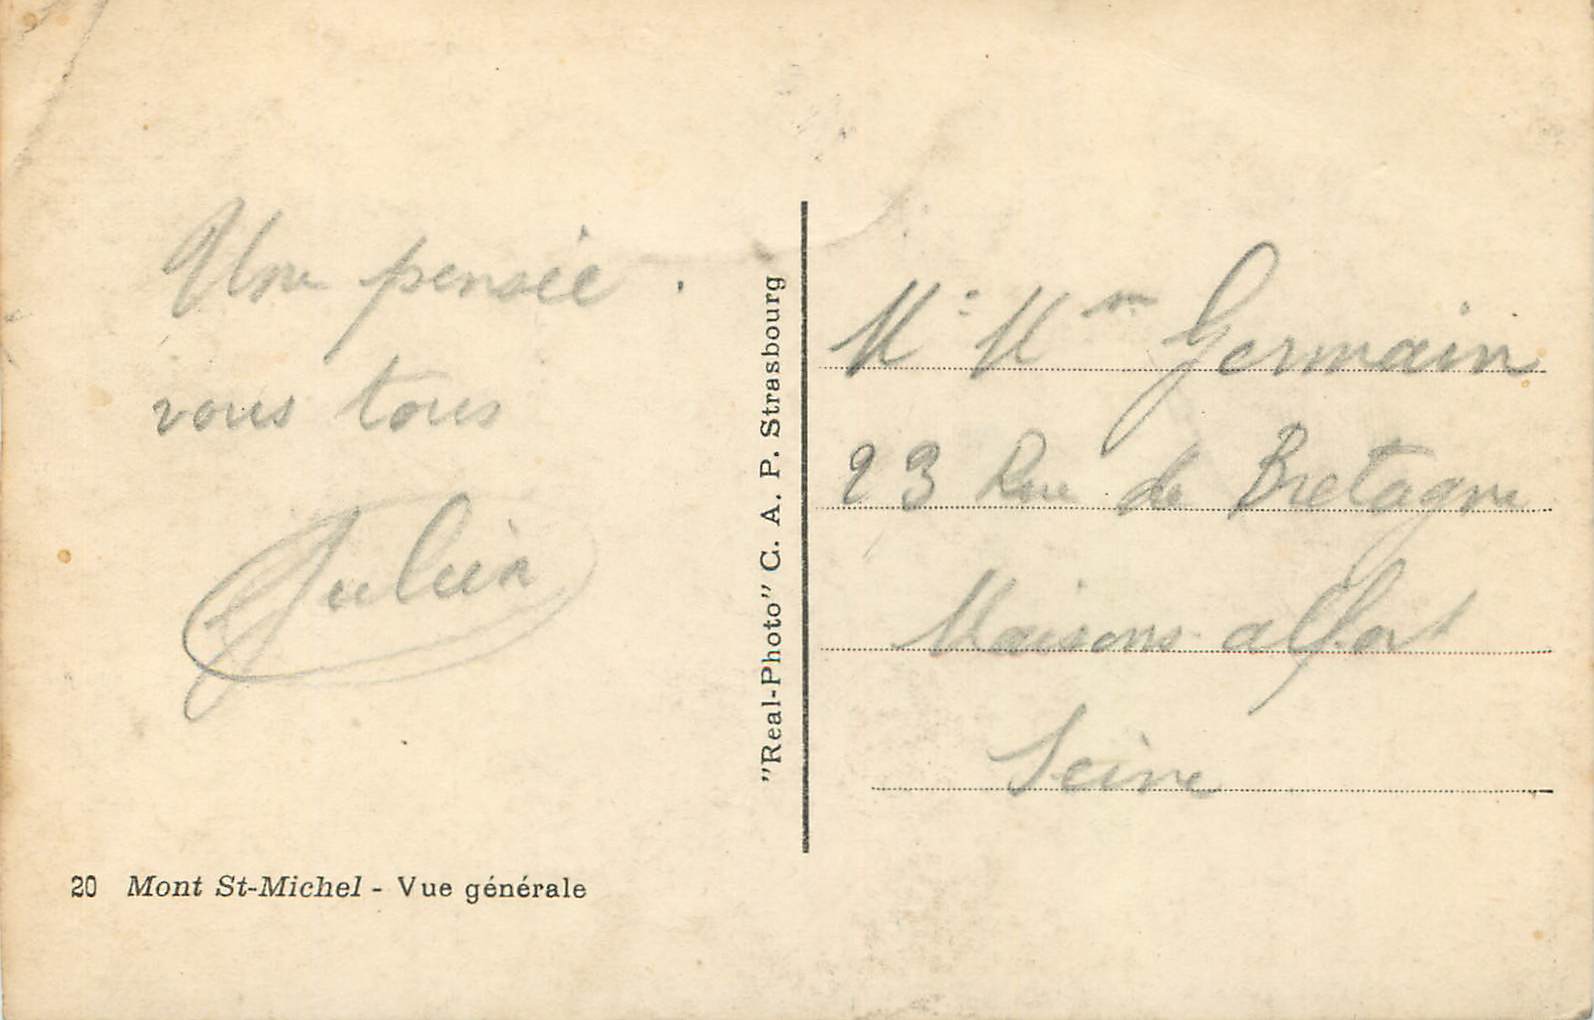 Une pensée
vous tous
Julien
20 Mont St-Michel - Vue générale
"Real-Photo" C. A. P. Strasbourg
M. Mme Germain
23 Rue de Bretagne
Maisons alfort
Seine